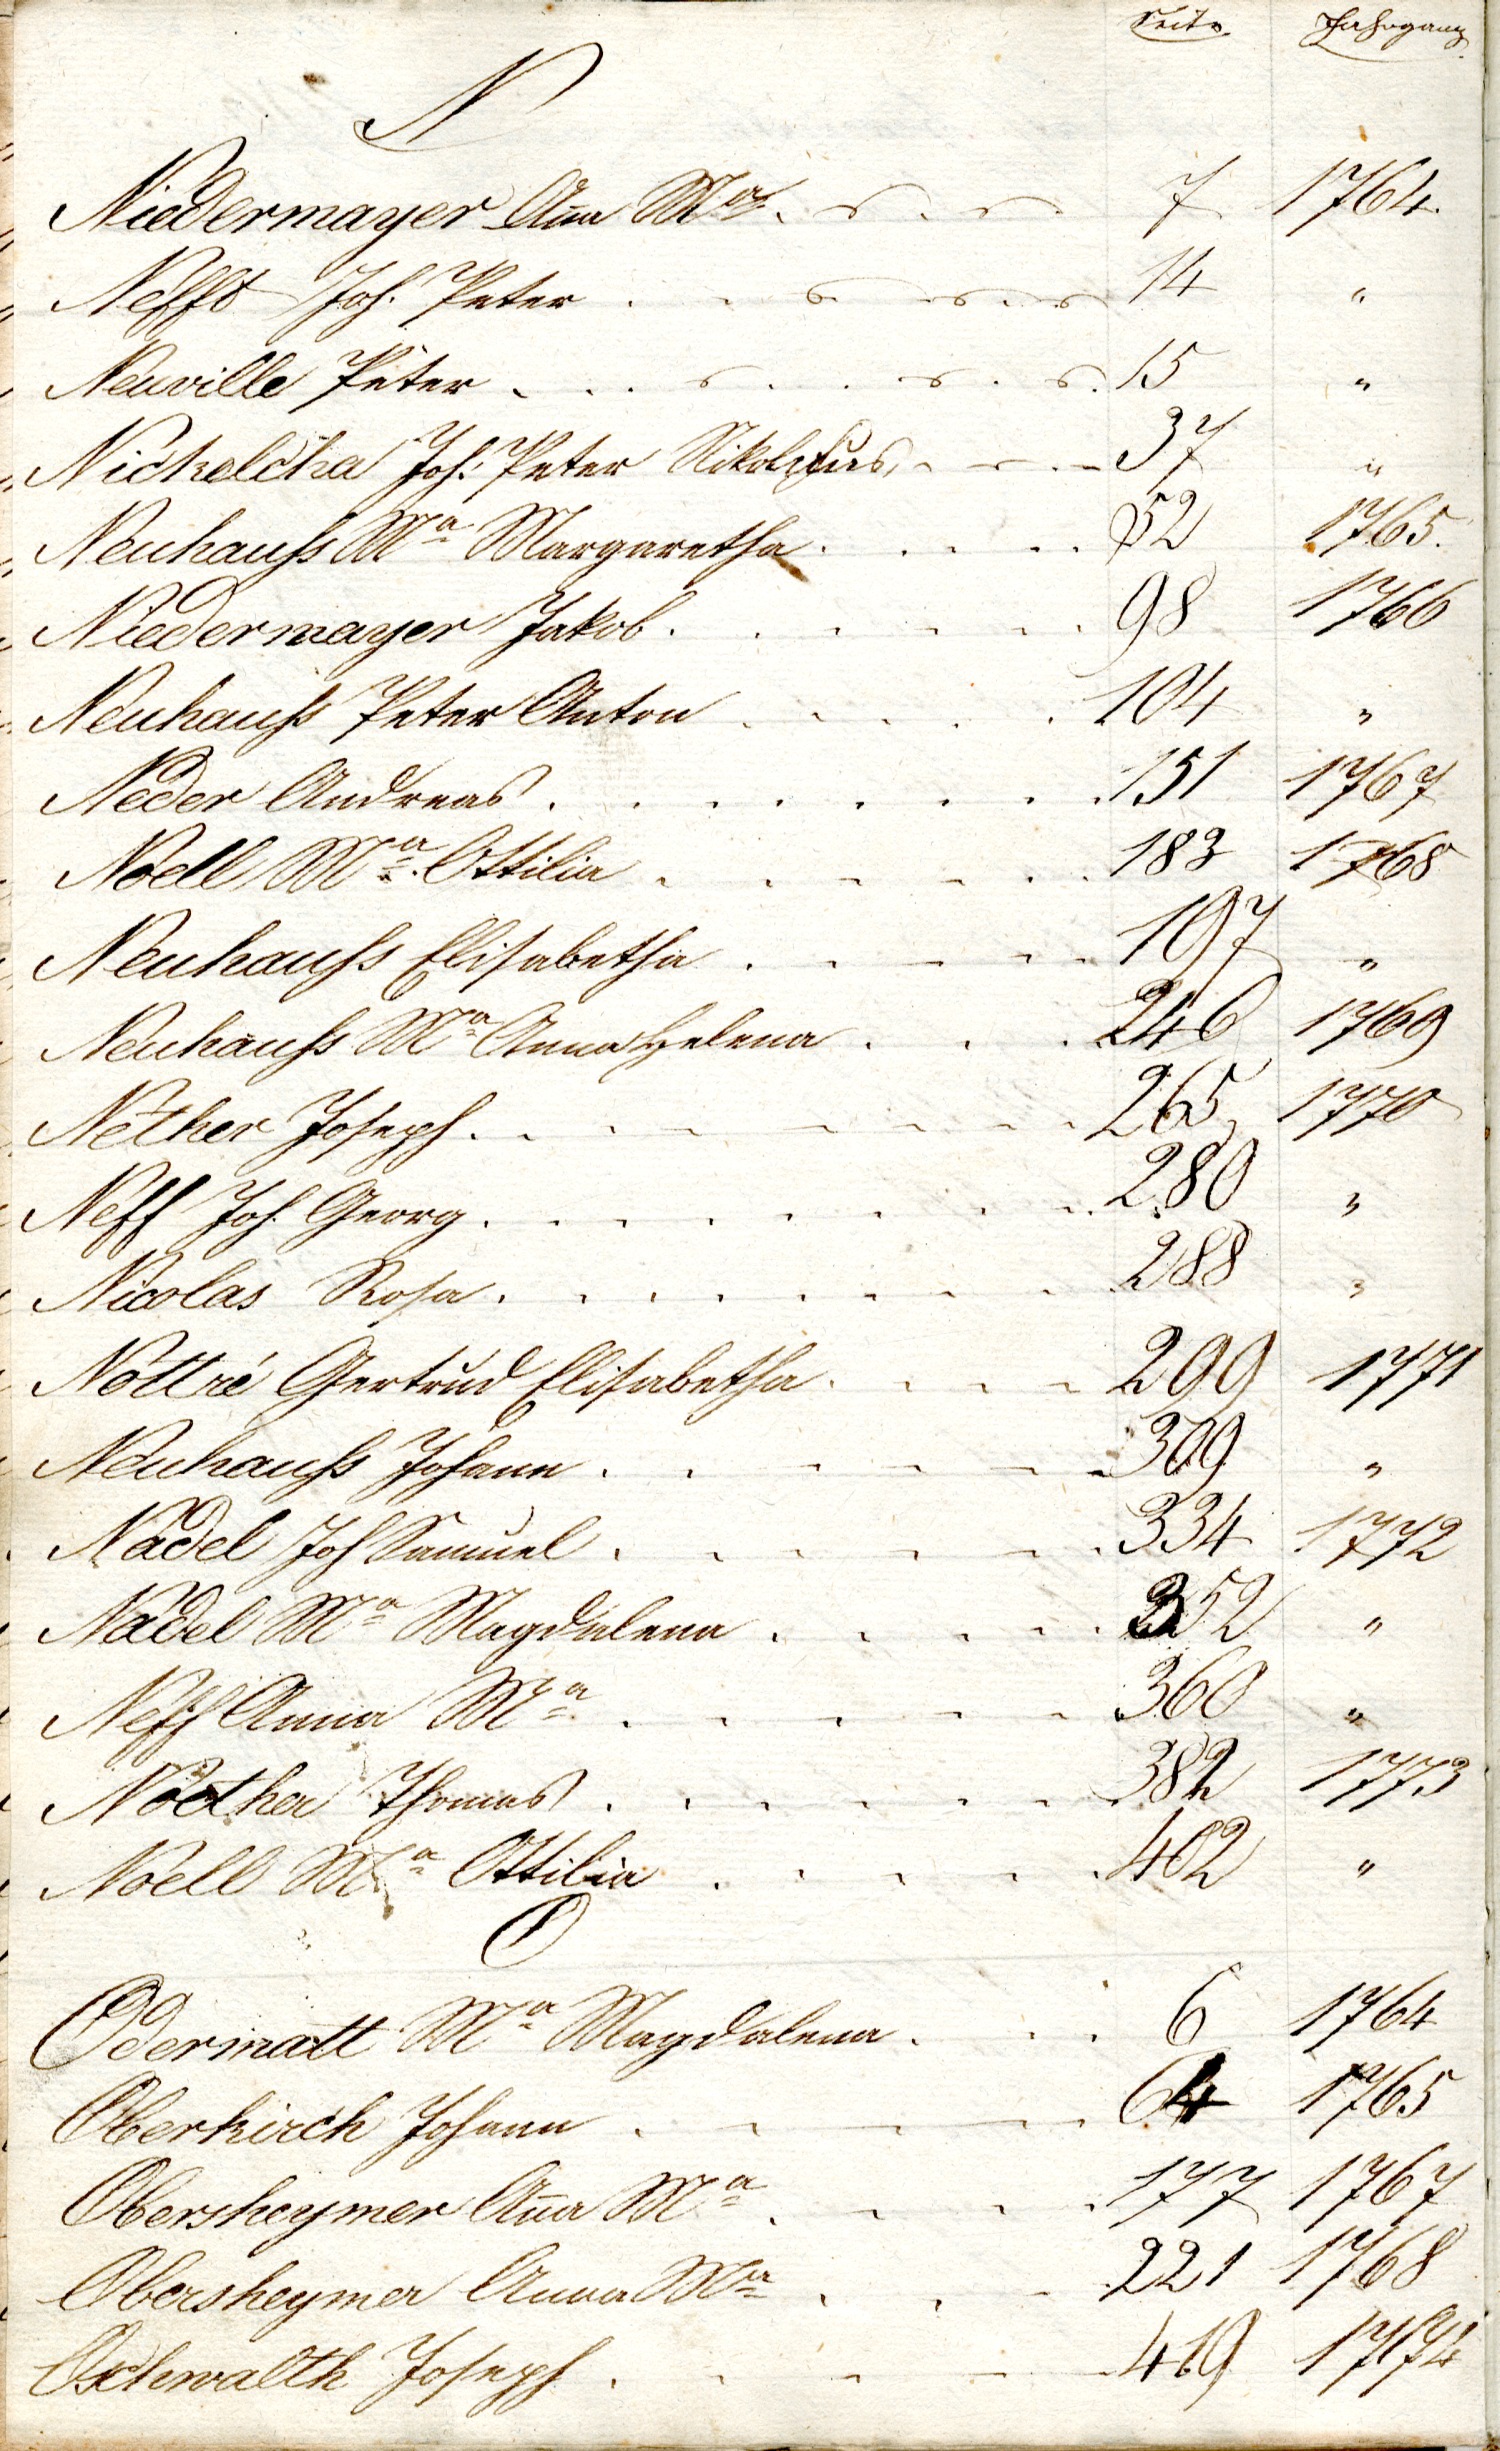 Seite Jahrgang
N
Niedermayer Aña Mª 7 1764.
Nefft Joh. Peter 14 "
Neuville Peter 15 "
Nickelcha Joh. Peter Nikolaus 37 "
Neuhauſs Mª Margaretha 52 1765.
Niedermayer Jakob 98 1766
Neuhauſs Peter Anton 104 "
Neder Andreas 151 1767
Noell Mª Ottilia 183 1768
Neuhauſs Elisabetha 197 "
Neuhauſs Mª Anna Helena 246 1769
Nether Joseph 265 1770
Neff Joh. Georg 280 "
Nicolas Rosa 288 "
Nottré Gertrud Elisabetha 299 1771
Neuhauſs Johann 309 "
Nadel Joh Samuel 334 1772
Nadel Mª Magdalena 352 "
Neff Anna Mª 360 "
Noether Thomas 382 1773
Noell Mª Ottilia 402 "
O
Odermatt Mª Magdalena 6 1764
Oberkirch Johann 64 1765
Obersheymer Aña Mª 177 1767
Obersheymer Anna Mª 221 1768
Oschwalth Joseph 419 1774